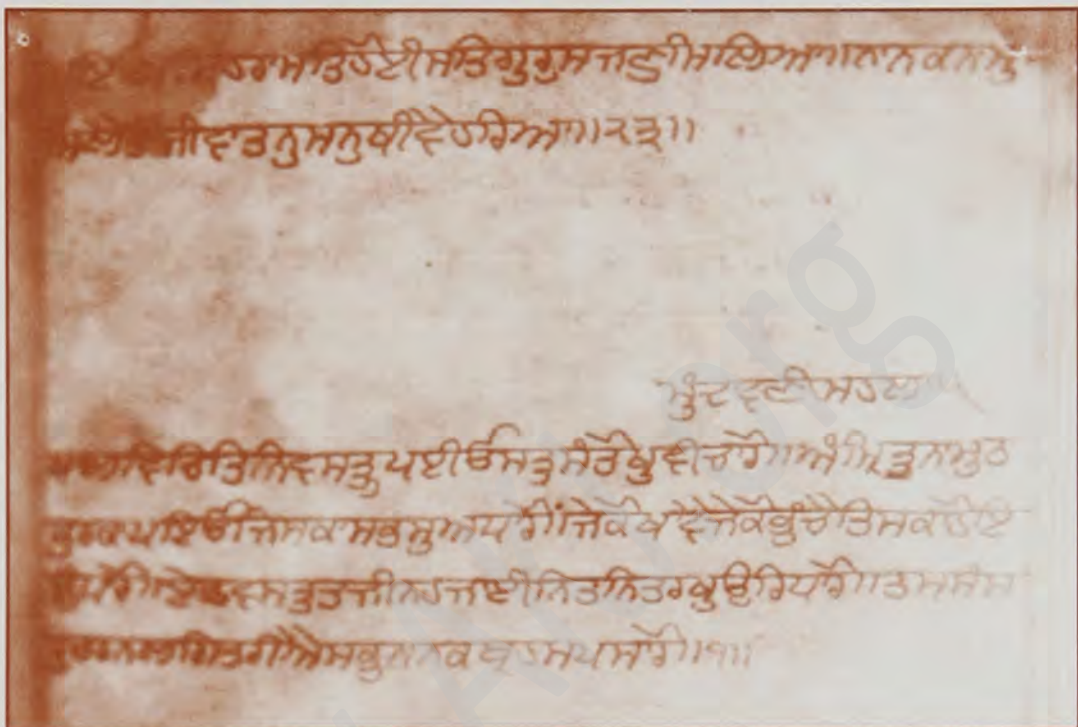 ਹਰਾਮਤਿਹੋਈਸਤਿਗੁਰੁਸਜਣੁਮਿਲਿਆ॥ਨਾਨਕਨਾਮੁ
ਜੀਵਾਤਨੁਮਨੁਥੀਵੈਹਰਿਆ॥੨੩॥
ਮੁੰਦਵਣੀਮਹਲਾ੫
ਵਿਚਿਤਿੰਨਿਵਸਤੂਪਈਓਸਤੁਸੰਤੋਖੁਵੀਚਾਰੋ॥ਅੰਮ੍ਰਿਤੁਨਾਮੁਠਾ
ਕੁਰਕਾਪਇਓਜਿਸਕਾਸਭਸੁਅਧਾਰੋ॥ਜੇਕੋਖਾਵੈਜੇਕੋਭੁੰਚੈਤਿਸਕਾਹੋਇ
ਉਧਾਰੋ॥ਏਹਵਸਤੁਤਜੀਨਹਜਾਈਨਿਤਨਿਤਰਖੁਉਰਿਧਾਰੋ॥ਤਮਸੰਸਾ
ਰੁਚਰਨਲਗਿਤਰੀਐਸਭੁਨਾਨਕਬ੍ਰਹਮਪਸਾਰੋ॥੧॥